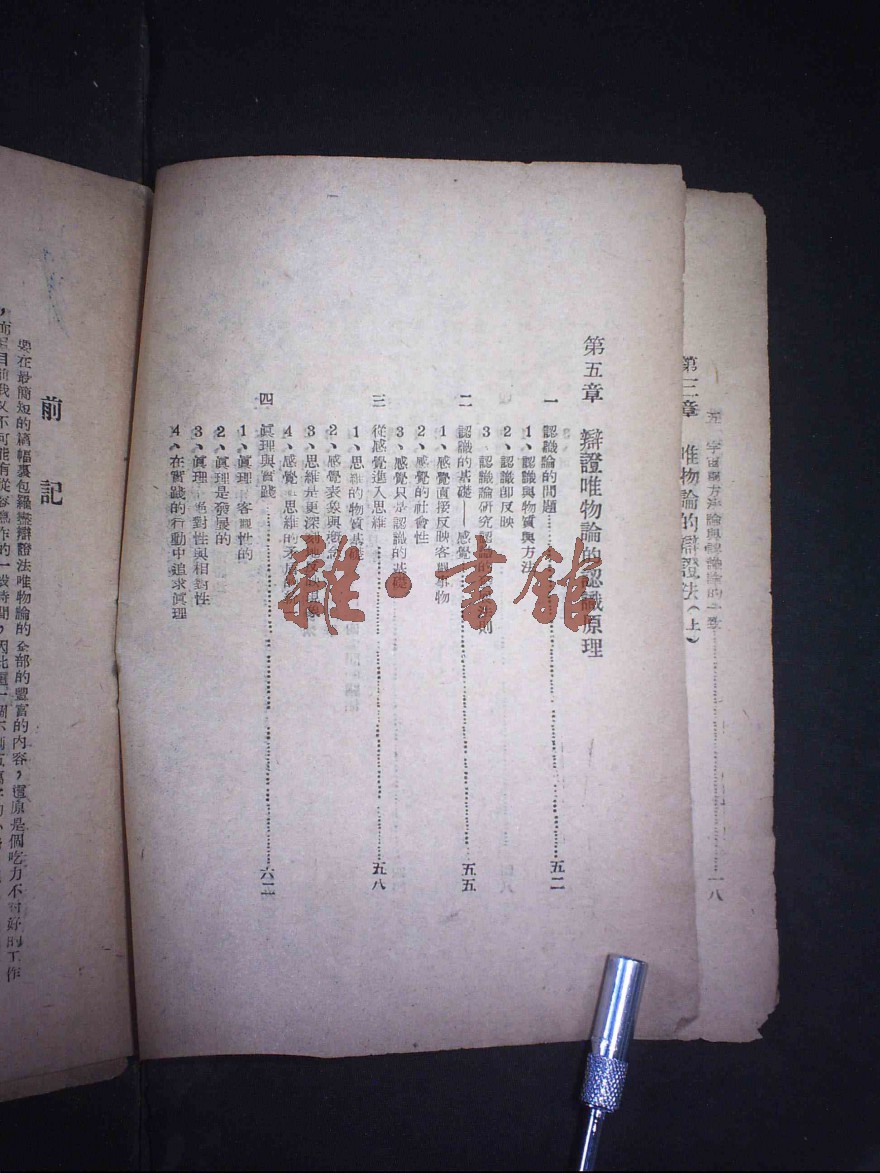 第三章　唯物論的辯證法（上）
一八
第五章　辯證唯物論的認識原理
一　認識論的問題……五二
1、認識與物質與方法
2、認識即反映
3、認識論研究認識的
則
二　認識的基礎——感覺……五五
1、感覺直接反映客觀事物
2、感覺的社會性
3、感覺只是認識的基礎
三　從感覺進入思維……五八
1、思維的物質基礎
2、感覺表象與概念
3、思維是更深刻地反映現象
4、感覺與思維的矛盾
四　眞理與實踐……六二
1、眞理是客觀性的
2、眞理是發展的
3、眞理的絕對性與相對性
4、在實踐的行動中追求眞理
雜·書館
前記
要在最簡短的篇幅裏包羅盡辯證法唯物論的全部的豐富的內容，還原是個吃力不討好的工作
，而在目前我又不可能有從容寫作的一段時間，因此這一個不滿五萬字的